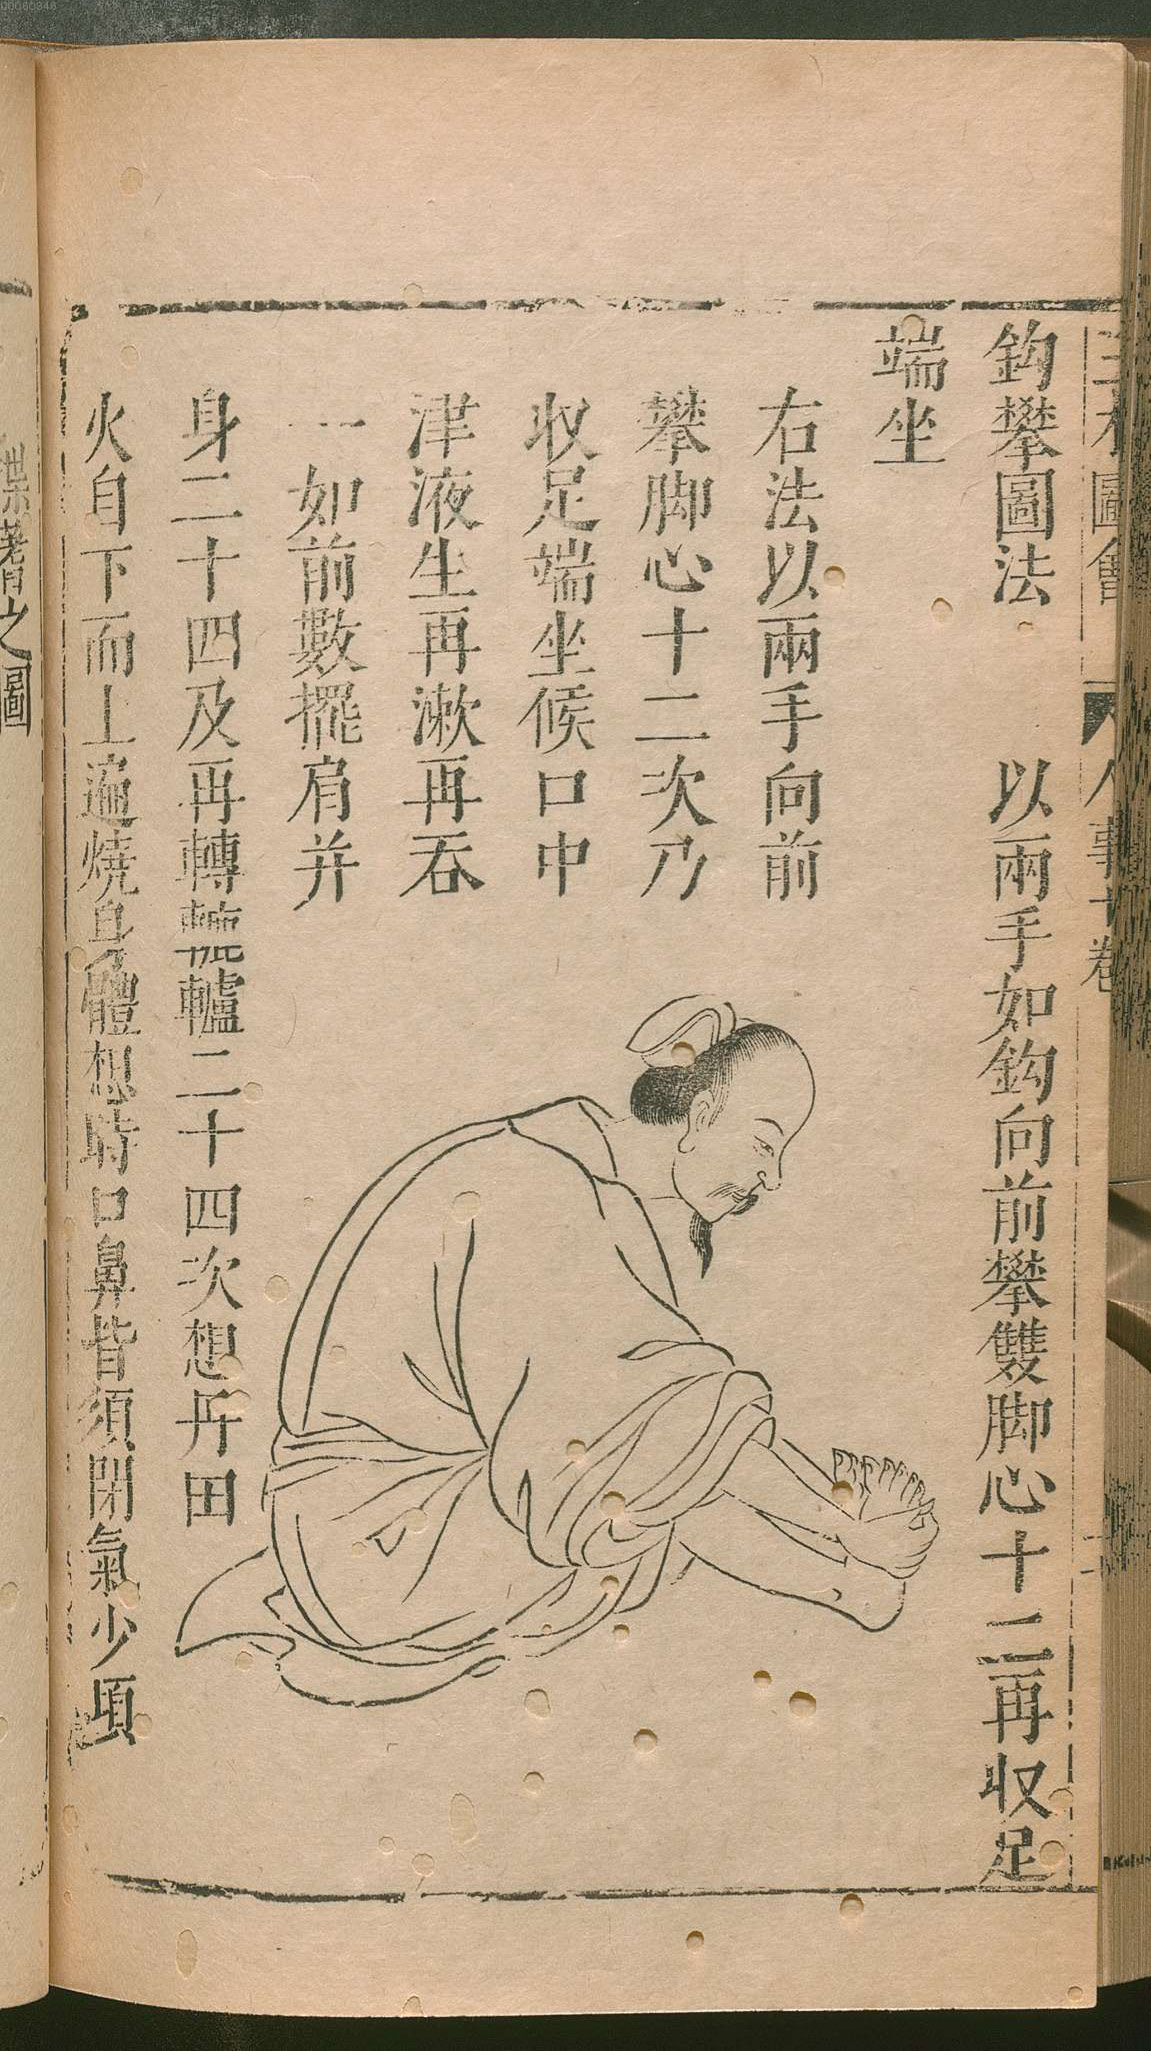 鈎攀圖法　以兩手如鈎向前攀雙脚心十二再收足
端坐
右法以兩手向前
攀脚心十二次乃
收足端坐候口中
津液生再漱再吞
一如前數擺肩并
身二十四及再轉轆轤二十四次想丹田
火自下而上遍燒身體想時口鼻皆須閉氣少頃
蓍之圖
00060346